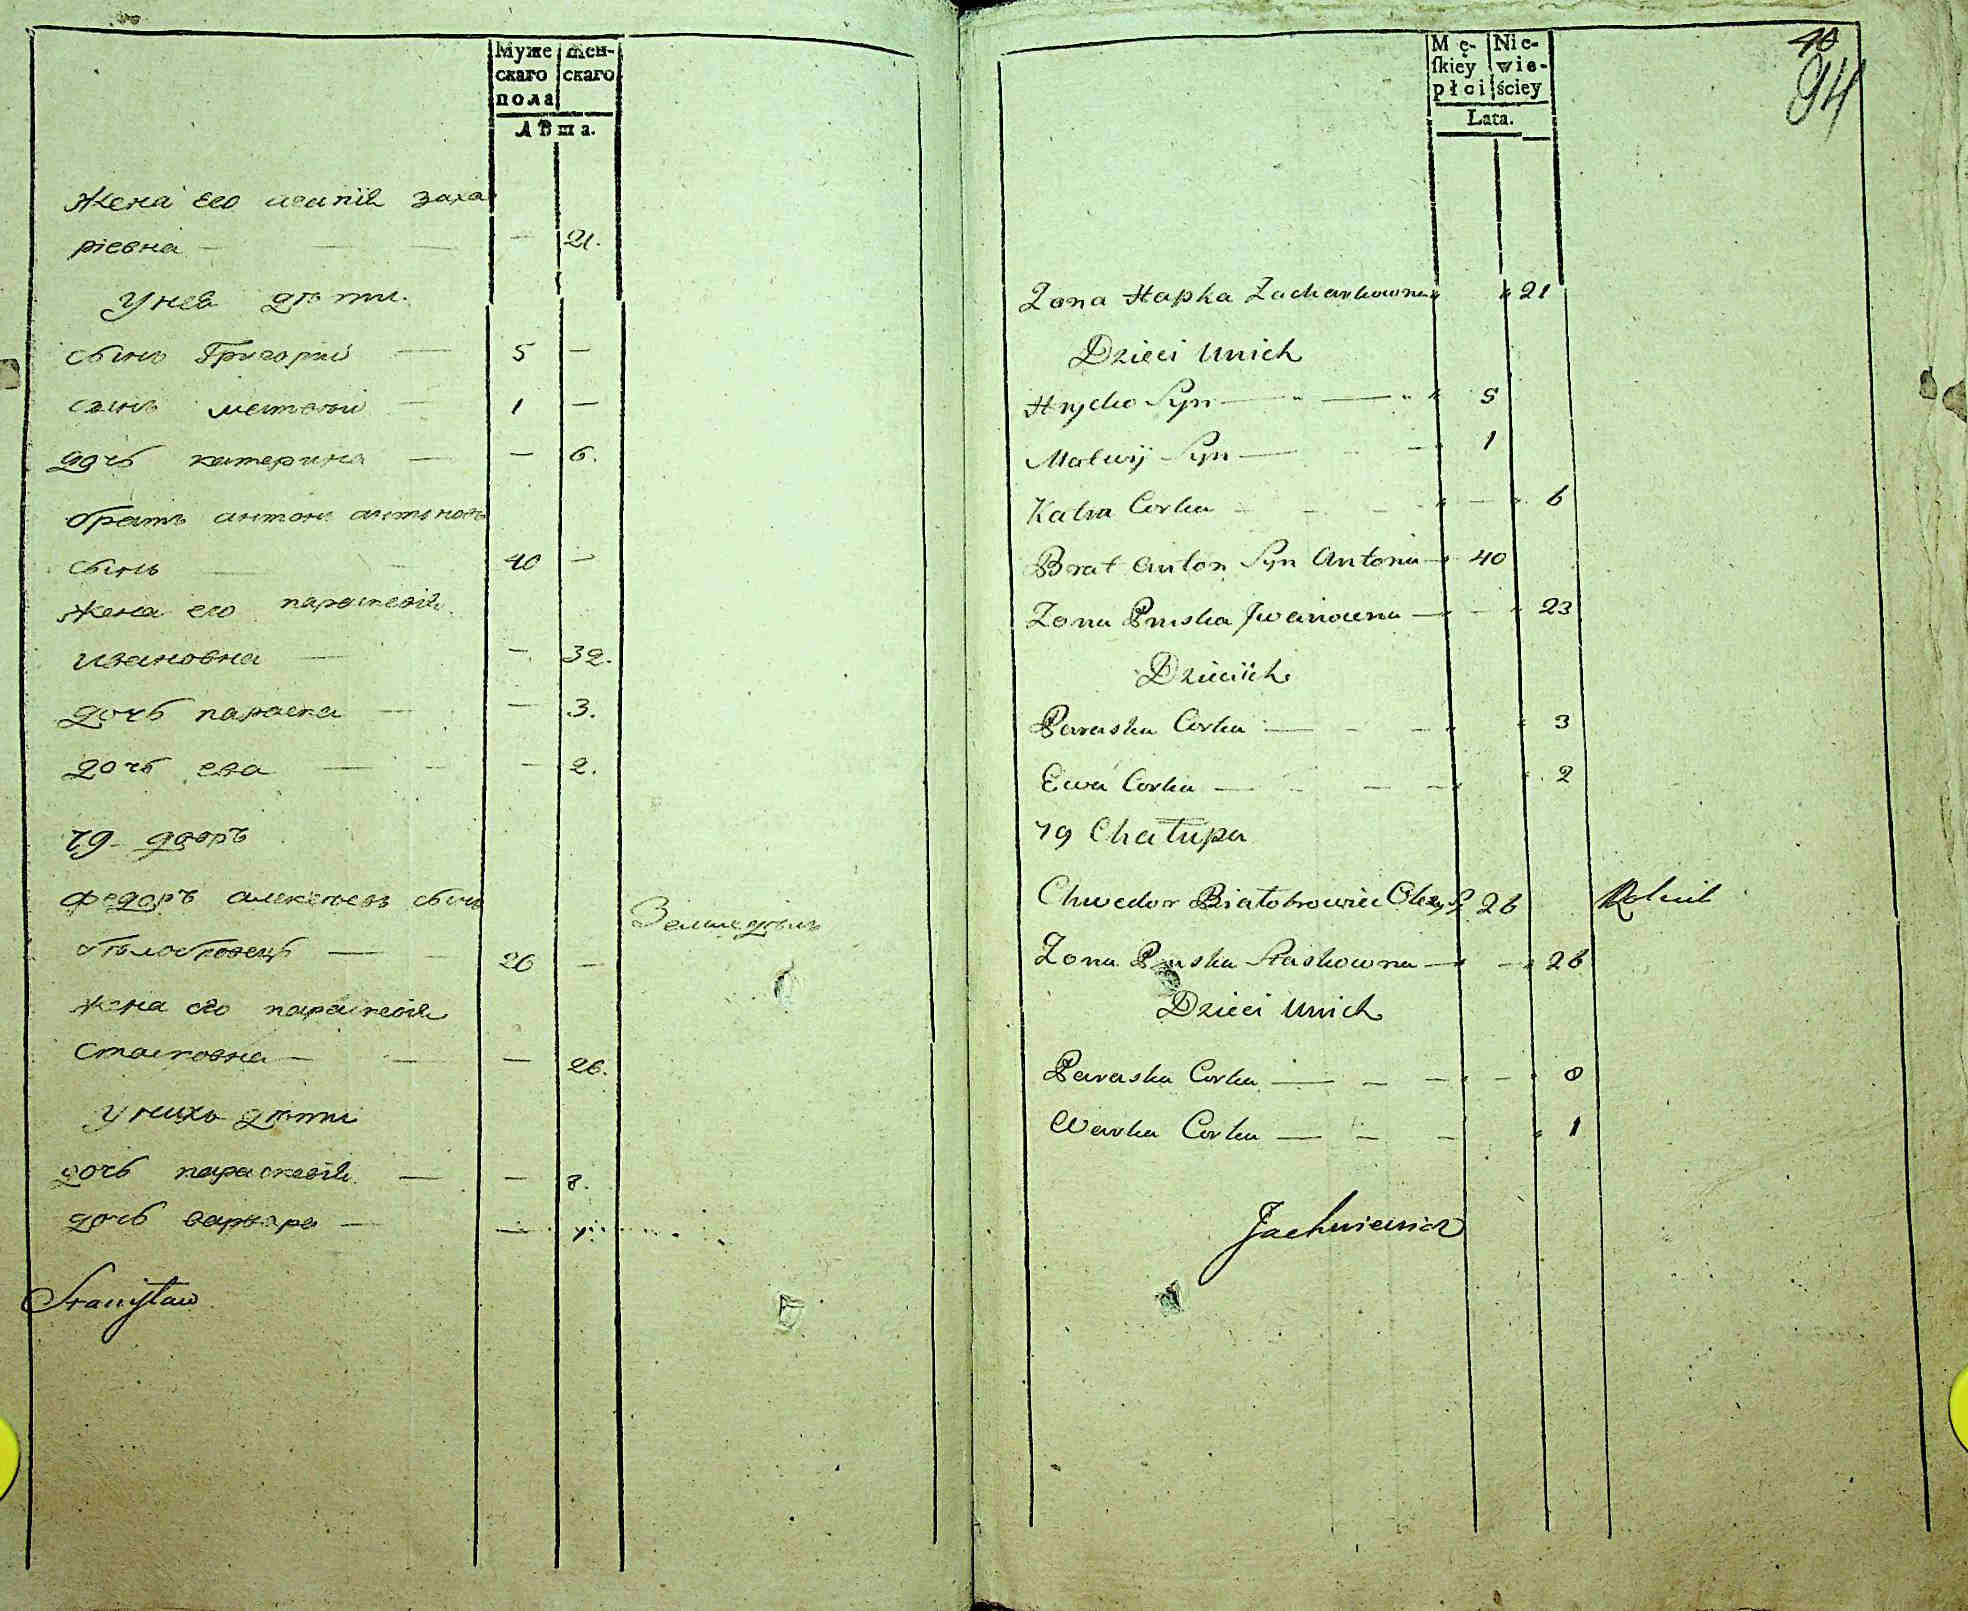 Муже
скаго
пола
Жен-
скаго
лѣта.
Жена его агапія заха
ріевна — — — — 21.
У нея дѣти.
сынъ Григорій — 5 —
сынъ матвей — 1 —
дочь катерина — — 6.
братъ антонъ антоновъ
сынъ — — 40 —
жена его параскевія
ивановна — — 32.
дочь параска — — 3.
дочь ева — — — 2.
19 дворъ
федоръ алексеевъ сынъ
бѣлобровецъ — — 26 —
Земледѣлъ
жена его параскевія
стасковна — — — 26.
У нихъ дѣти
дочь параскевія — — 8.
дочь варвара — — 1.
Stanisław
40
94
Mę-
skiey
płci
Nie-
wie-
ściey
Lata.
Zona Hapka Zacharkowna 21
Dzieci Unich
Hryćko Syn — — 5
Matwij Syn — — 1
Katra Corka — — — — 6
Brat Anton Syn Antonia — 40
Zona Pruska Jwanowna — — 23
Dzieci ich
Paraska Corka — — — 3
Ewa Corka — — — 2
19 Chałupa
Chwedor Białobrowiec Olexy S. 26 Rolnik
Zona Pruska Staskowna — — 26
Dzieci Unich
Paraska Corka — — — — 8
Warka Corka — — — 1
Jachniewicz